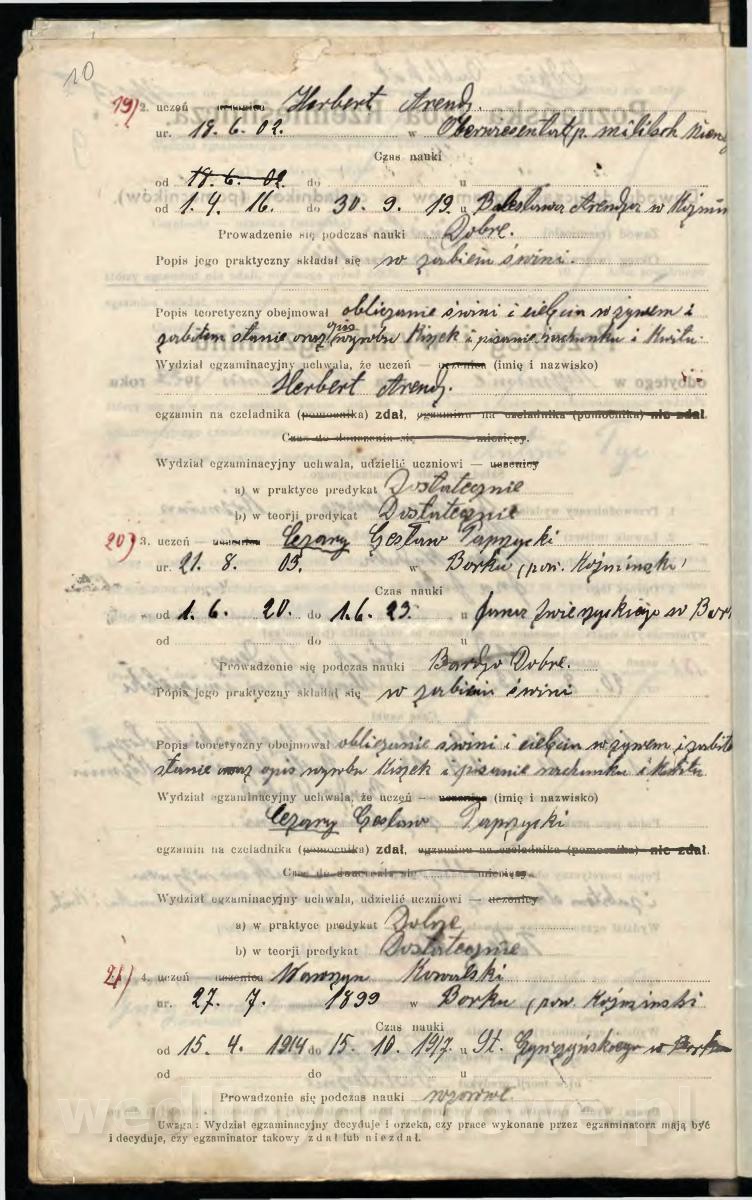 10
19) 2. uczeń uczenica Herbert Arendz.
ur. 18. 6. 02. w
Czas nauki
od 18. 6. 02. do u
od 1. 4. 16. do 30. 9. 19. u Bolesława Arendza w Koźmin
Prowadzenie się podczas nauki Dobre.
Popis jego praktyczny składał się w zabiciu świni.
Popis teoretyczny obejmował obliczanie świni i cielęcia w żywem i
zabitem stanie oraz opis wyrobu kiszek i pisanie rachunku i kwitu.
Wydział egzaminacyjny uchwala, że uczeń — uczenica (imię i nazwisko)
Herbert Arendz.
egzamin na czeladnika (pomocnika) zdał, egzaminu na czeladnika (pomocnika) nie zdał.
Czas do douczenia się miesięcy.
Wydział egzaminacyjny uchwala, udzielić uczniowi — uczenicy
a) w praktyce predykat Dostatecznie
b) w teorji predykat Dostatecznie
20) 3. uczeń — uczenica Cezary Czesław Paprzycki
ur. 21. 8. 05. w Borku (pow. Koźmiński)
Czas nauki
od 1. 6. 20. do 1. 6. 23. u w Bor
od do u
Prowadzenie się podczas nauki Bardzo Dobre.
Popis jego praktyczny składał się w zabiciu świni
Popis teoretyczny obejmował obliczanie świni i cielęcia w żywem i zabite
stanie oraz opis wyrobu kiszek i pisanie rachunku i kwitu
Wydział egzaminacyjny uchwala, że uczeń — uczenica (imię i nazwisko)
Cezary Czesław Paprzycki
egzamin na czeladnika (pomocnika) zdał, egzaminu na czeladnika (pomocnika) nie zdał.
Czas do douczenia się miesięcy.
Wydział egzaminacyjny uchwala, udzielić uczniowi — uczenicy
a) w praktyce predykat Dobrze
b) w teorji predykat Dostatecznie
21) 4. uczeń uczenica Wawrzyn Kowalski
ur. 27. 7. 1899 w Borku (pow. Koźmiński
Czas nauki
od 15. 4. 1914 do 15. 10. 1917. u St. w Borku
od do u
Prowadzenie się podczas nauki wzorowe.
Uwaga: Wydział egzaminacyjny decyduje i orzeka, czy prace wykonane przez egzaminatora mają być
i decyduje, czy egzaminator takowy zdał lub nie zdał.